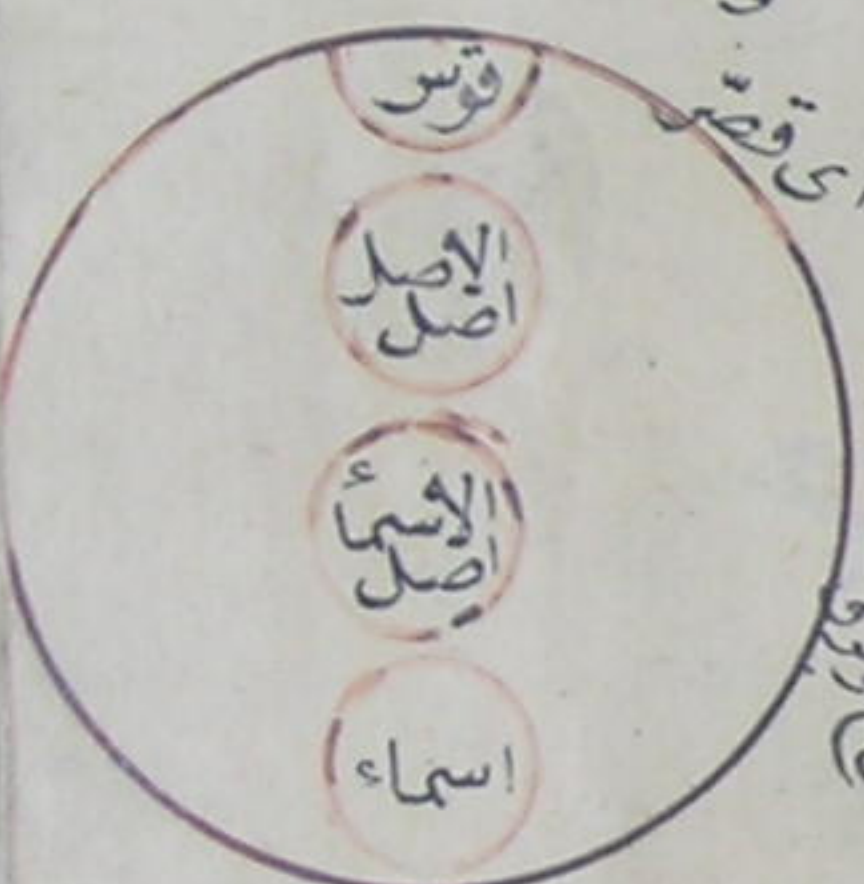 قوس
الاصل
اصل
الاسمأء
اصل
اسماء